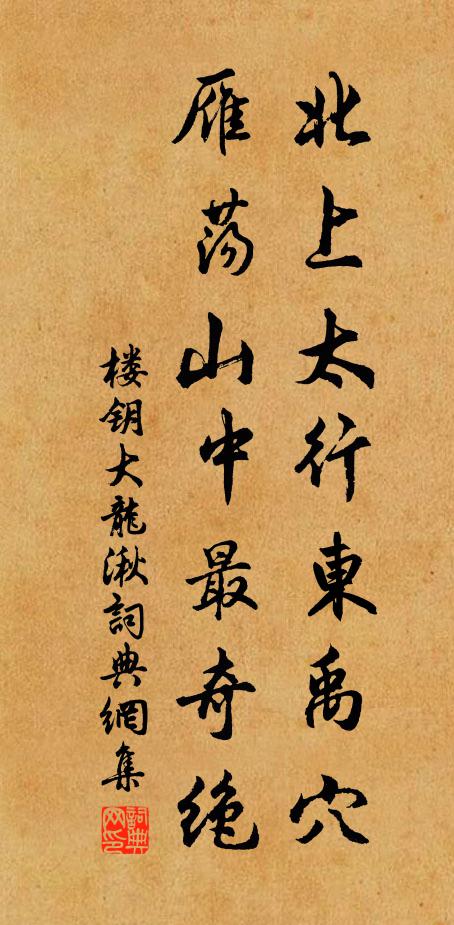 北上太行東禹穴
雁荡山中最奇绝
楼钥大龍湫詞典網集
詞典
网印